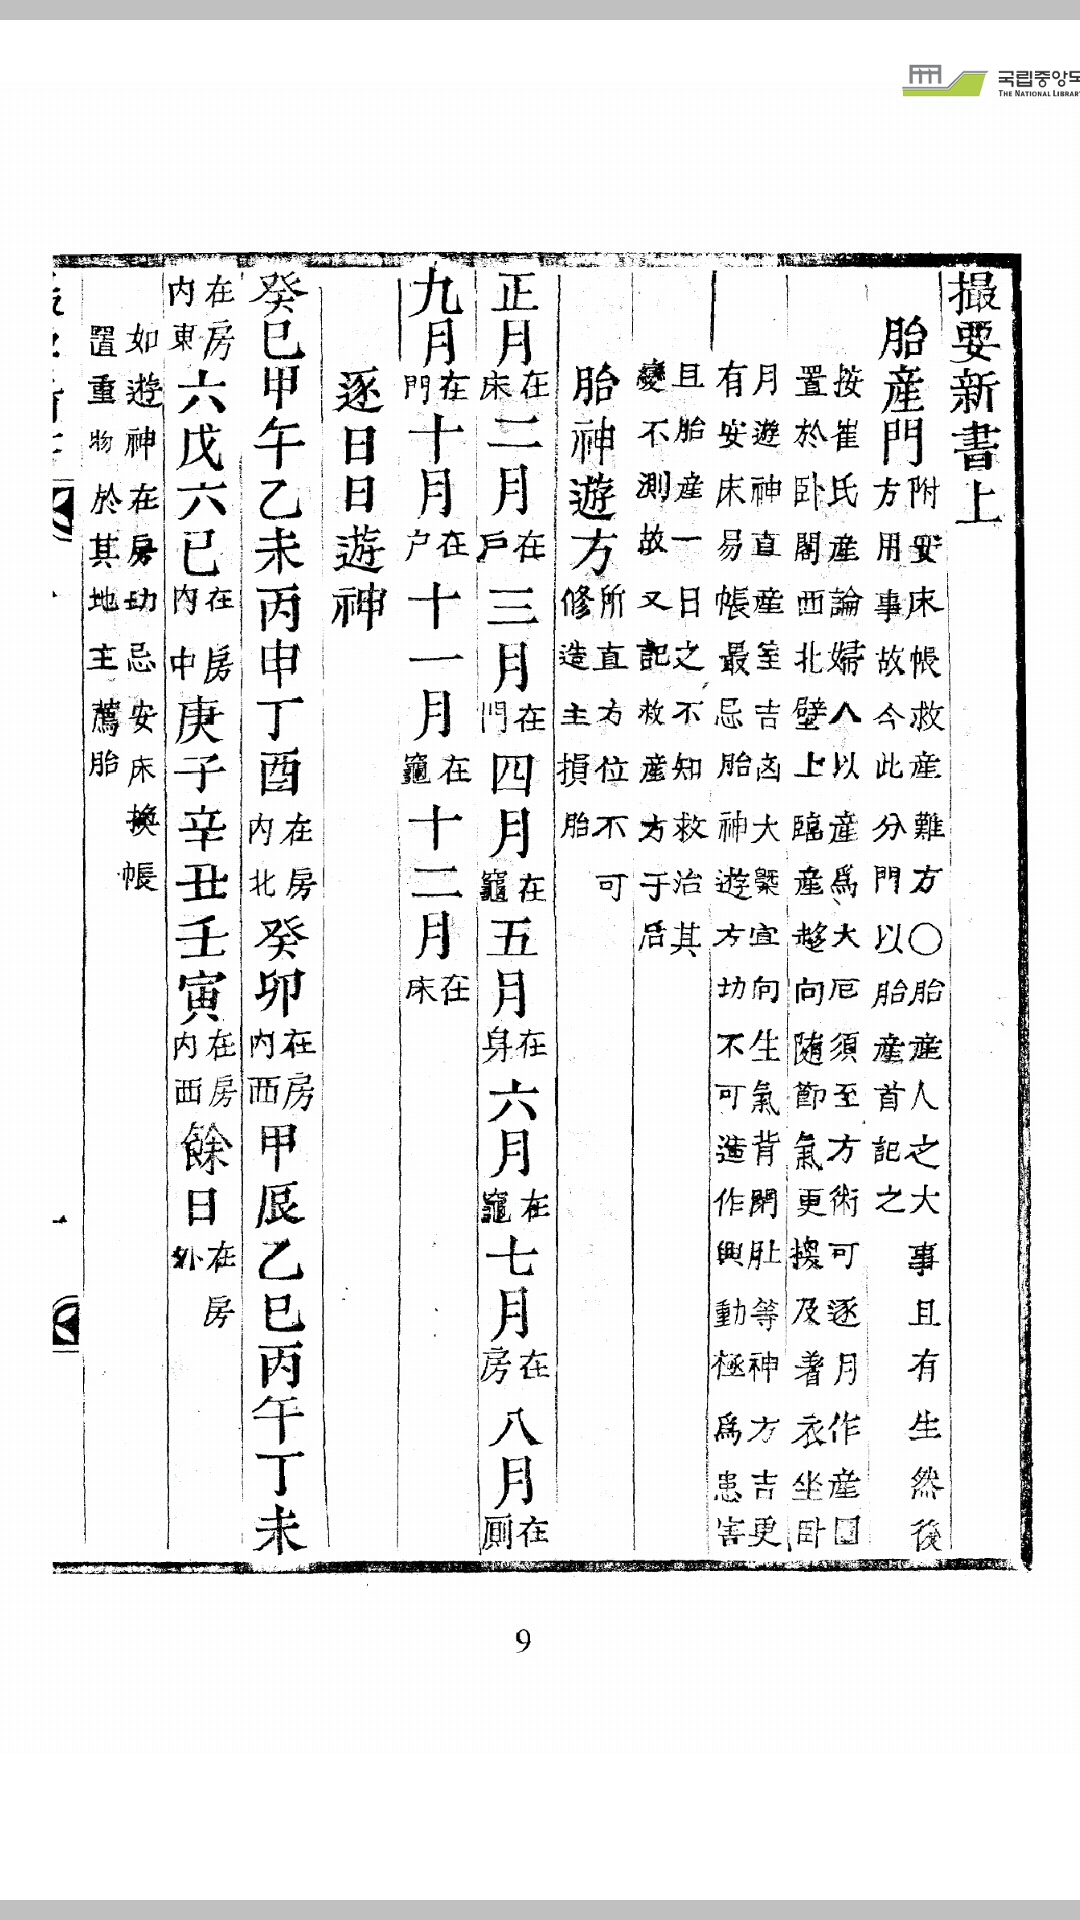 국립중앙도
THE NATIONAL LIBRAR
撮要新書上
胎產門
附安床帳救産難方〇胎産人之大事且有生然後
方用事故今此分門以胎産首記之
按崔氏産論婦人以産爲大厄須至方術可逐月作産圖
置於卧閣西北壁上臨産趍向随節氣更換及着衣坐卧
月遊神直産室吉凶大槩宜向生氣背閉肚等神方吉更
有安床易帳最忌胎神遊方切不可造作興動極爲患害
且胎産一日之不知救治其
變不測故又記救産方于后
胎神遊方
所直方位不可
修造主損胎
正月在床二月在戶三月在門四月在竈五月在身六月在竈七月在房八月在厠
九月在門十月在户十一月在竈十二月在床
逐日日遊神
癸巳甲午乙未丙申丁酉在房內北癸卯在房內西甲辰乙巳丙午丁未
在房內東六戊六己在房內中庚子辛丑壬寅在房內西餘日在房外
如遊神在房切忌安床換帳
置重物於其地主薦胎
9